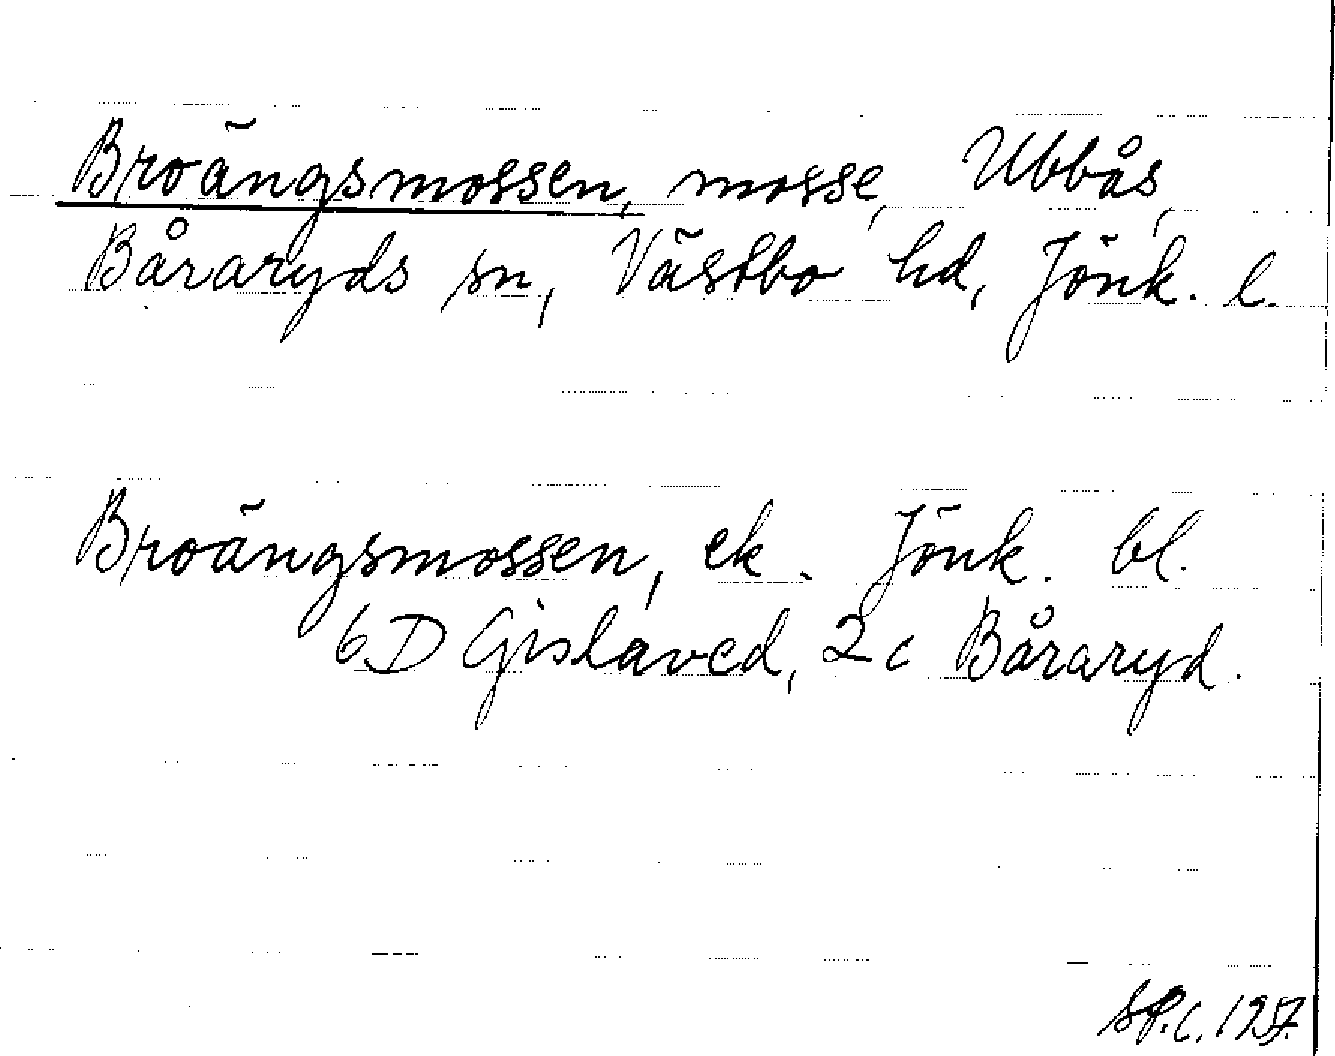 Broängsmossen, mosse, Ubbås,
Båraryds sn, Västbo hd, Jönk. l.
Broängsmossen, ek. Jönk. bl.
6D Gislaved, 2c Båraryd.
1957.